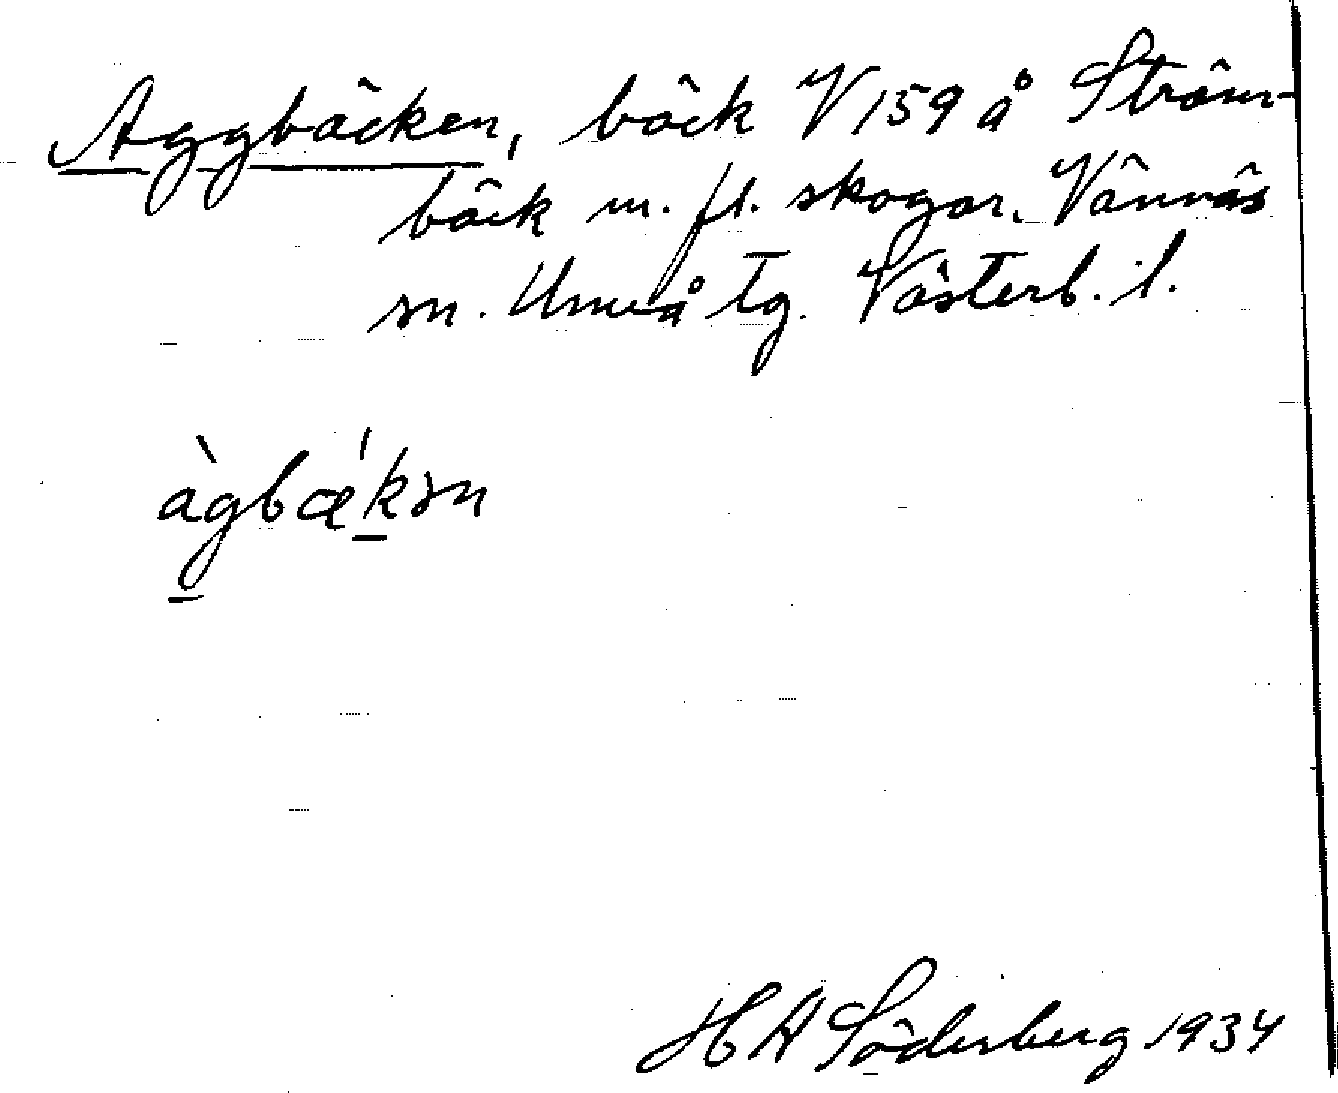 Aggbäcken, bäck V 159 å Ström-
bäck m. fl. skogar. Vännäs
sn. Umeå tg. Västerb. l.
àgbǽkən
H A Söderberg 1934